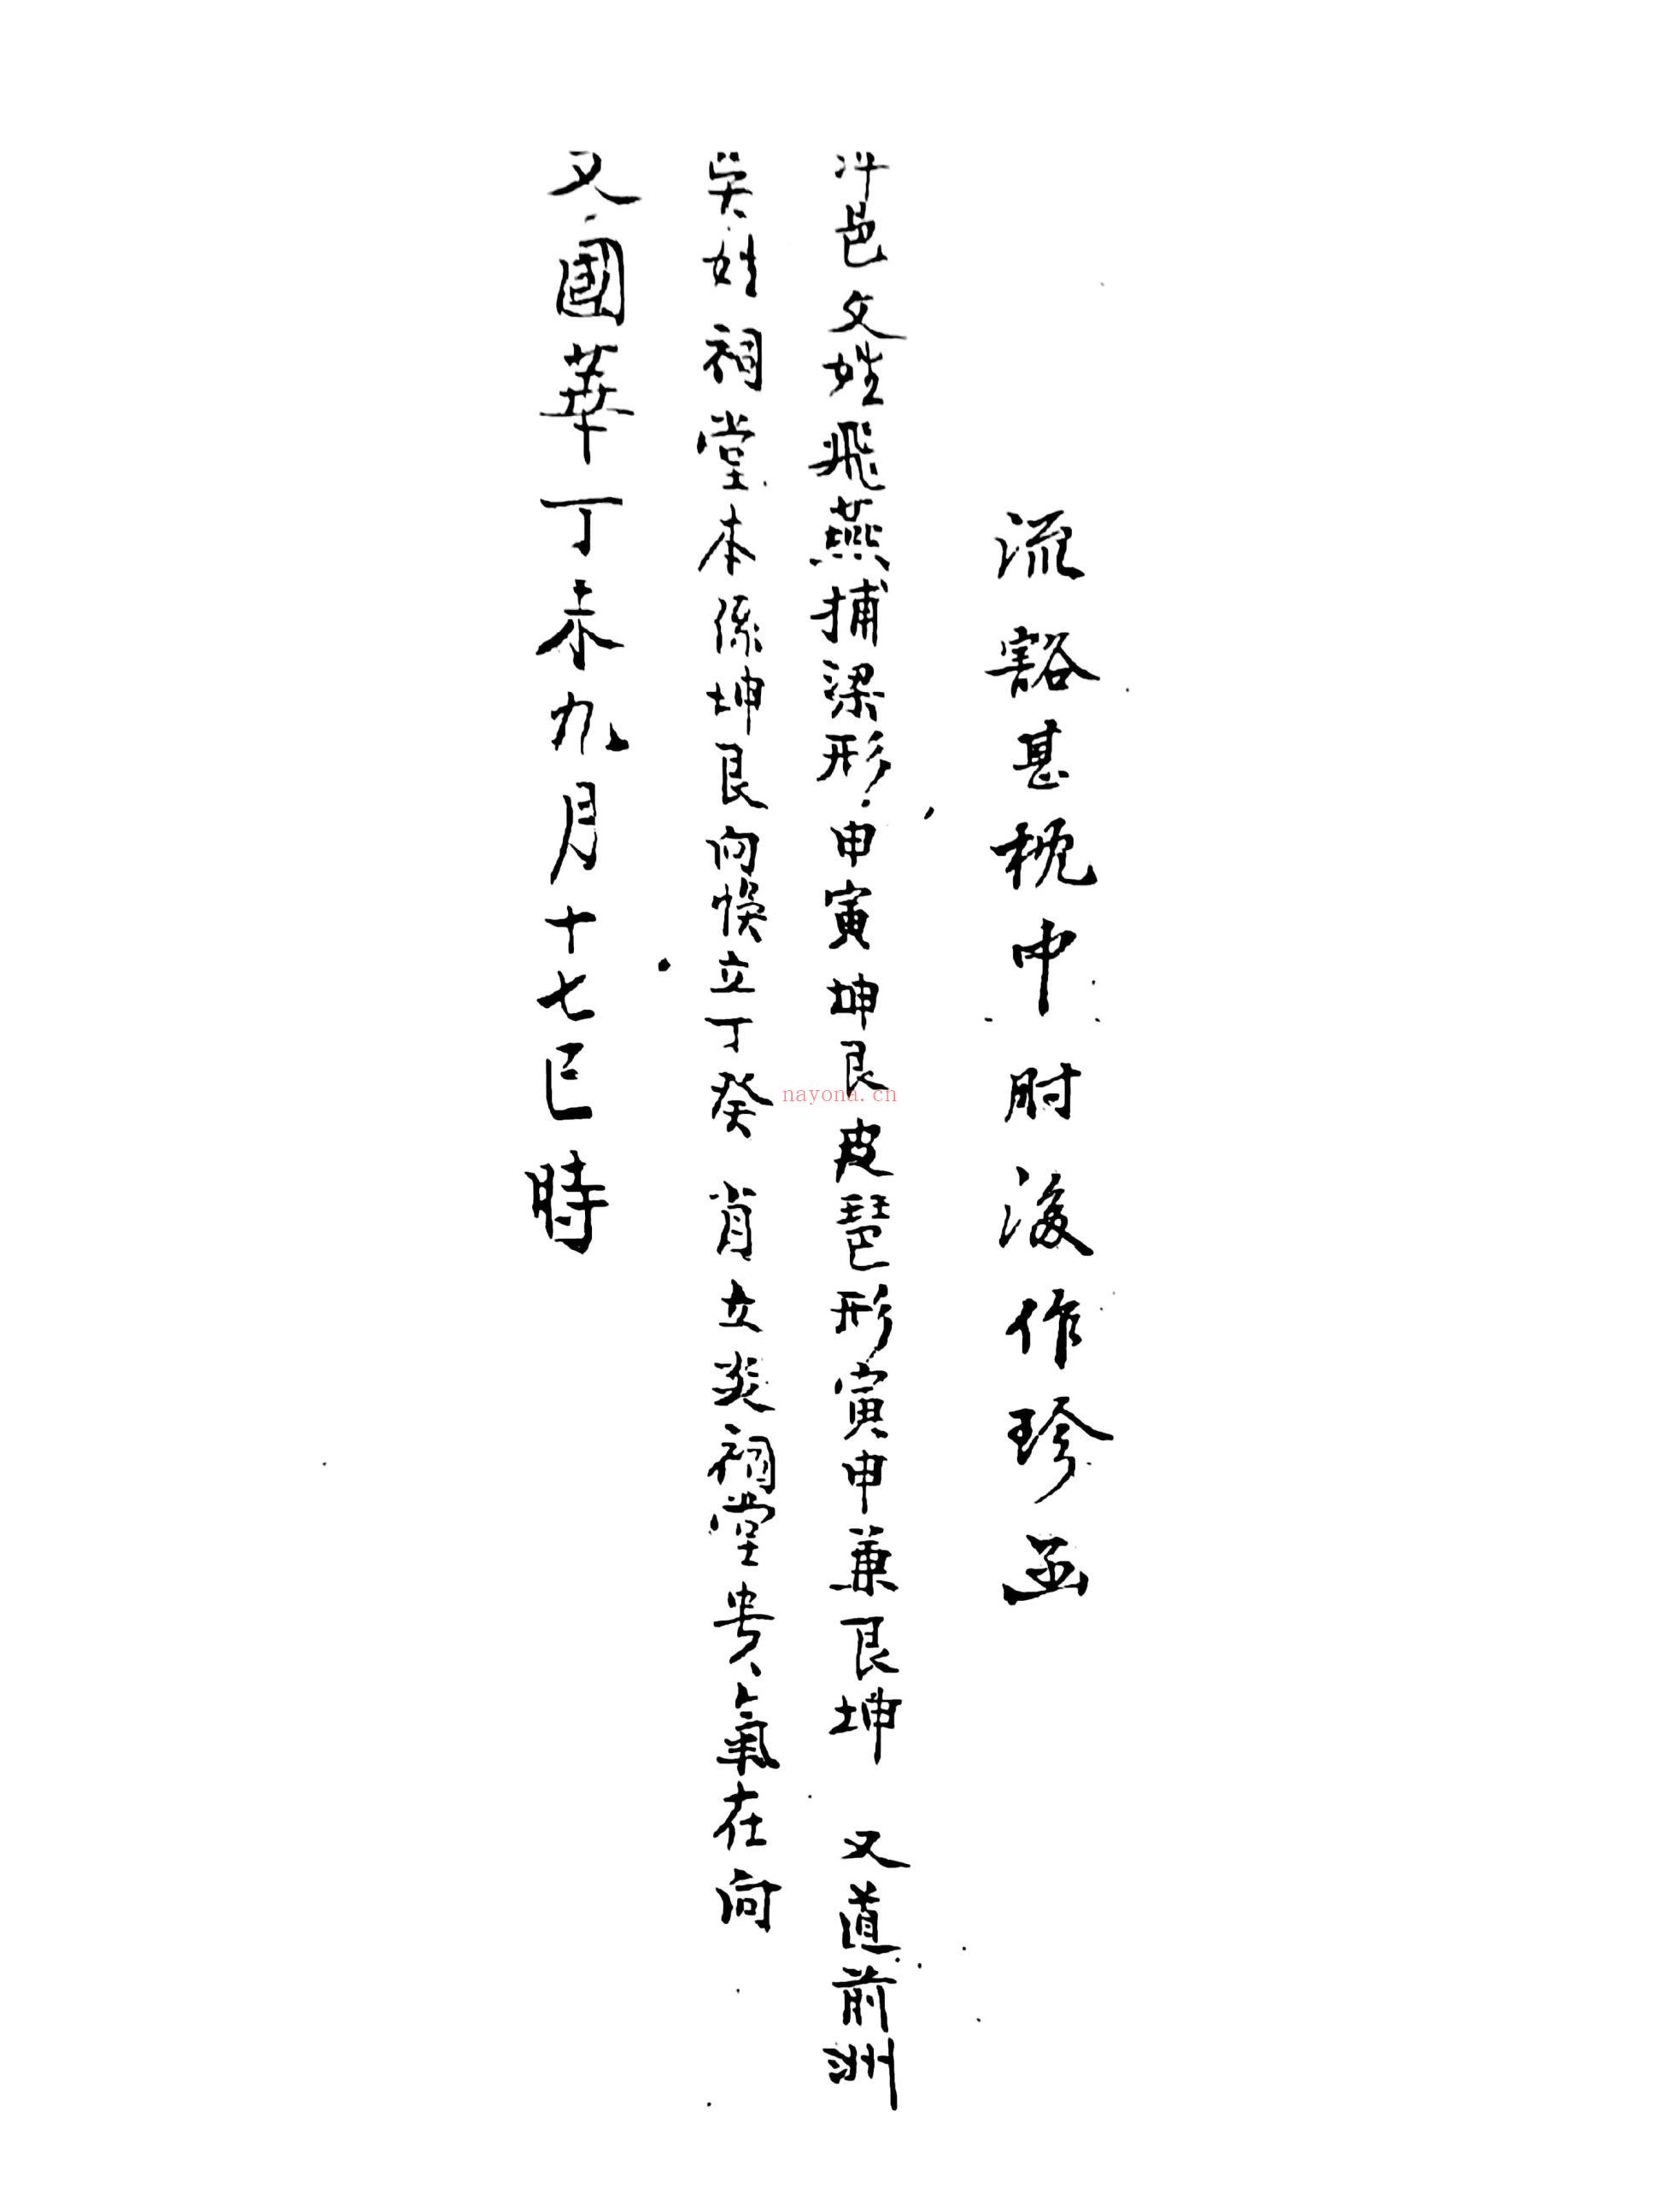 流豁甚枕中肘後作珍函
邑文姓飛燕捕梁形申寅坤艮皮琶形寅申兼艮坤 又道前洲
吴姓祠堂本係坤艮向悞立丁癸 肯立癸祠堂贵氣在向
又國華丁未九月十七巳時
nayona.cn